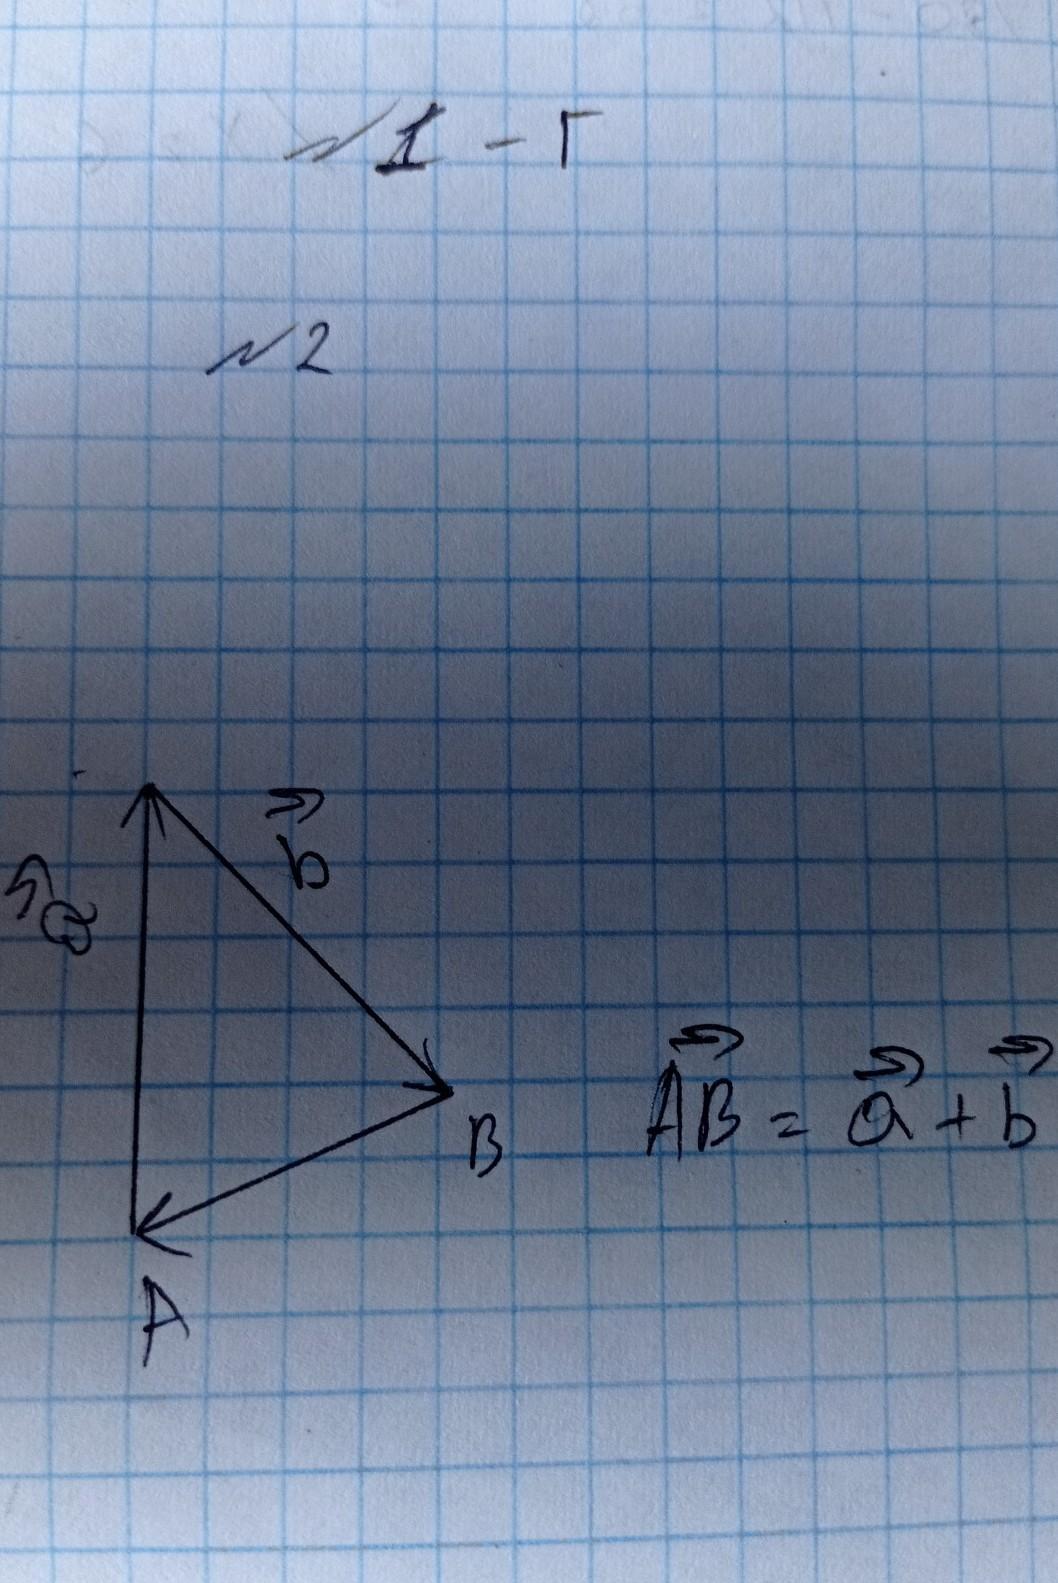 №1 - Г
№2
a⃗
b⃗
B
A⃗B⃗ = a⃗ + b⃗
A